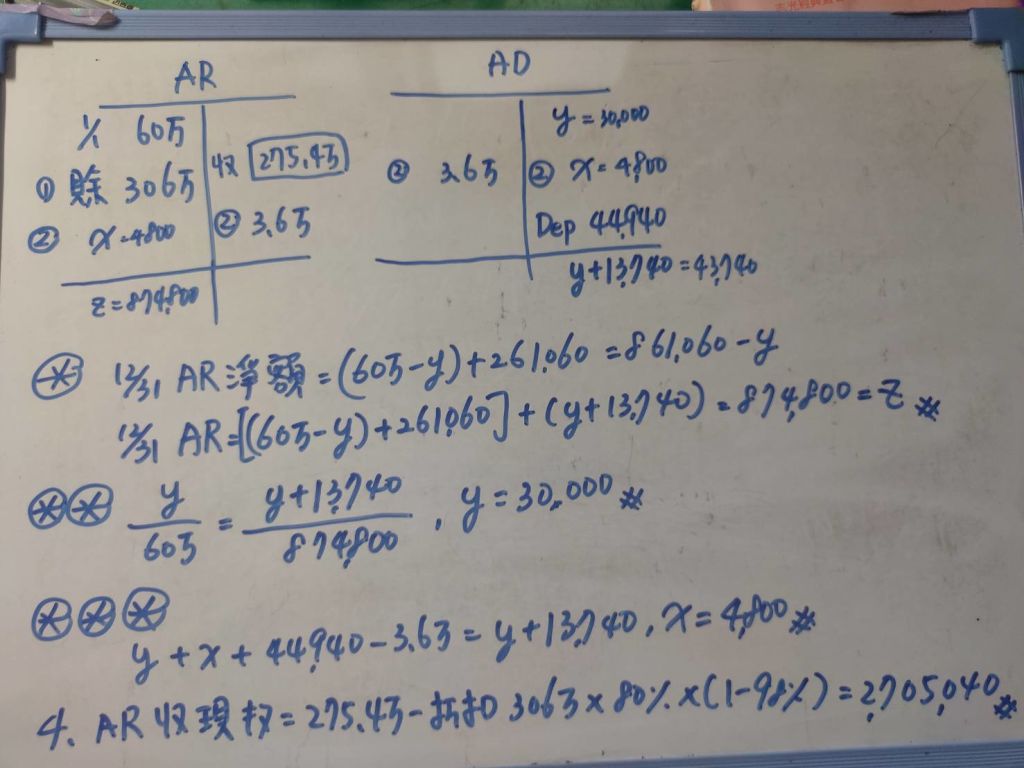 AR
1/1 60万
① 賒 306万
② x=4800
收 275.4万
② 3.6万
z=874,800
AD
② 3.6万
y=30,000
② x=4,800
Dep 44,940
y+13,740=43,740
⊛ 12/31 AR淨額=(60万-y)+261,060=861,060-y
12/31 AR=[(60万-y)+261,060]+(y+13,740)=874,800=z ※
⊛⊛ y/60万 = y+13,740/874,800 , y=30,000 ※
⊛⊛⊛
y+x+44,940-3.6万=y+13,740, x=4,800 ※
4. AR收現 = 275.4万-折扣 306万×80%×(1-98%)=2,705,040 ※